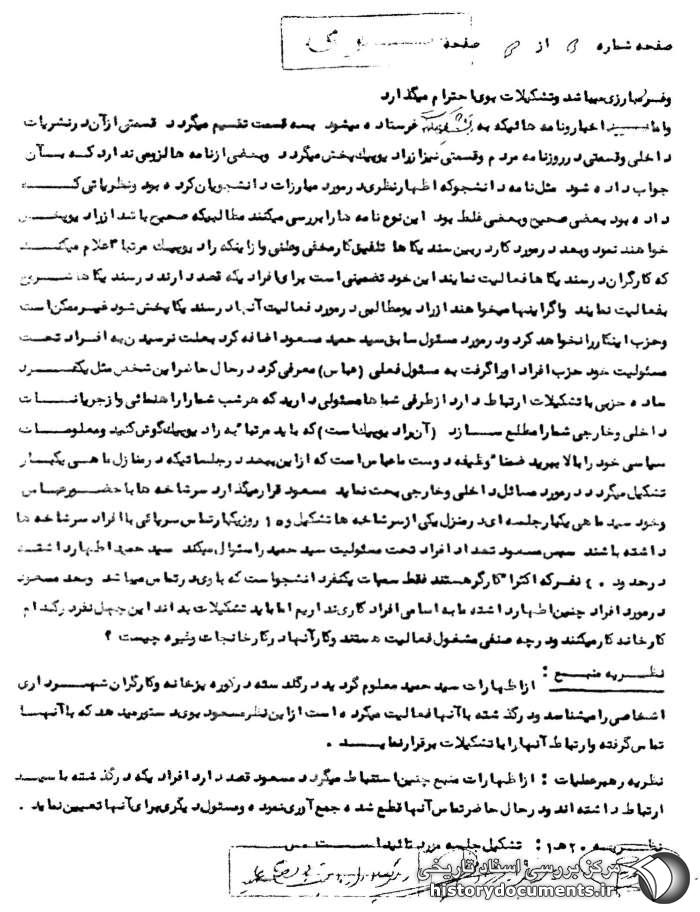 صفحه شماره ۵ از ۶ صفحه
وفردمبارزی میباشد وتشکیلات بوی احترام میگذارد
واما اخبارونامه هائیکه به فرستاده میشود بسه قسمت تقسیم میگردد قسمتی ازآن درنشریات
داخلی وقسمتی درروزنامه مردم وقسمتی نیزازرادیوپیک پخش میگردد وبعضی ازنامه ها لزومی ندارد کـه بـآن
جواب داده شود مثل نامه دانشجوکه اظهارنظری درمورد مبارزات دانشجویان کرده بود ونظریاتی کــه
داده بود بعضی صحیح وبعضی غلط بود این نوع نامه ها را بررسی میکنند مطالبیکه صحیح باشد ازرادیوپخـش
خواهند نمود وبعد درمورد کاردربین سندیکاها تلفیق کارمخفی وعلنی وازاینکه رادیوپیک مرتبا" اعلام میکنـد
که کارگران درسندیکاها فعالیت نمایند این خود تضمینی است برای افرادیکه قصد دارند درسندیکاها شــروع
بفعالیت نمایند واگراینها میخواهند ازرادیومطالبی درمورد فعالیت آنها درسندیکا پخش شود غیرممکن است
وحزب اینکاررانخواهد کرد ودرمورد مسئول سابق سید حمید مسعود اضافه کرد بعلت نرسیدن به افـراد تحـت
مسئولیت خود حزب افراد اوراگرفت به مسئول فعلی (عباس) معرفی کرد درحال حاضراین شخص مثل یکفـرد
ساده حزبی با تشکیلات ارتباط دارد ازطرفی شما هامسئولی دارید که هرشب شماراراهنمائی وازجریانـات
داخلی وخارجی شمارا مطلع میسـازد (آن رادیوپیک است) که باید مرتبا" به رادیوپیک گوش کنید ومعلومـات
سیاسی خود را بالا ببرید ضمنا" وظیفه دوست ماعباس است که ازاین ببعد درجلساتیکه درمنازل ماهی یکبـار
تشکیل میگردد درمورد مسائل داخلی وخارجی بحث نماید مسعود قرارمیگذارد سرشاخه ها با حضـورعبـاس
وخود سید ماهی یکبارجلسه ای درمنزل یکی ازسرشاخه ها تشکیل و۱۵ روزیکبارتماس سرپائی با افراد سرشاخه ها
داشته باشند سپس مسعود تعداد افراد تحت مسئولیت سید حمید را سئوال میکند سید حمید اظهار داشتـه
درحدود ۴۰ نفرکه اکثرا" کارگرهستند فقط یکنفردانشجواست که باوی درتماس میباشد وبعد مسعود
درمورد افراد چنین اظهارداشته مابه اسامی افراد کاری نداریم اما باید تشکیلات بداند این چهل نفردرکدام
کارخانه کارمیکنند ودرچه صنفی مشغول فعالیت هستند وکارآنها درکارخانجات وغیره چیست ؟
نظـریه منبـع : ازاظهارات سید حمید معلوم گردید درگذشته درکوره پزخانه وکارگران شهـرداری
اشخاصی رامیشناسد ودرگذشته با آنها فعالیت میکرده است ازاین نظرمسعود بوی دستورمیدهد که با آنهـا
تماس گرفته وارتباط آنهارا با تشکیلات برقرارنمایـد .
نظریه رهبرعملیات : ازاظهارات منبع چنین استنباط میگردد مسعود قصد دارد افرادیکه درگذشته با سیـد
ارتباط داشته اند ودرحال حاضرتماس آنها قطع شده جمع آوری نموده ومسئول دیگری برای آنها تعیین نماید .
نظـریـه ۲۰ هـ ۱ : تشکیل جلسه مورد تائیداسـت
مرکز بررسی اسناد تاریخی
historydocuments.ir